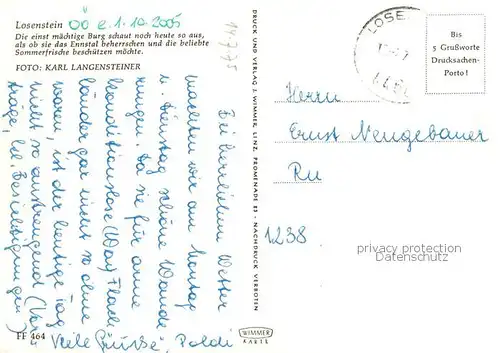 Losenstein OÖ e. 1.10.2005
Die einst mächtige Burg schaut noch heute so aus,
als ob sie das Ennstal beherrschen und die beliebte
Sommerfrische beschützen möchte.
FOTO: KARL LANGENSTEINER
Bei herrlichem Wetter
machten wir am Montag
u. Dienstag schöne Wande-
rungen. Da sie für arme
konditionslose (Wag) Flach-
länder gar nicht so ohne
waren, ist der heutige Tag
nicht so anstrengend (Vor-
träge, Besichtigungen)
Viele Grüsse, Poldi
FF 464
DRUCK UND VERLAG J. WIMMER, LINZ, PROMENADE 23 - NACHDRUCK VERBOTEN
WIMMER
KARTE
LOSE
Bis
5 Grußworte
Drucksachen-
Porto!
Herrn
Ernst Neugebauer
Ru
1238
privacy protection
Datenschutz